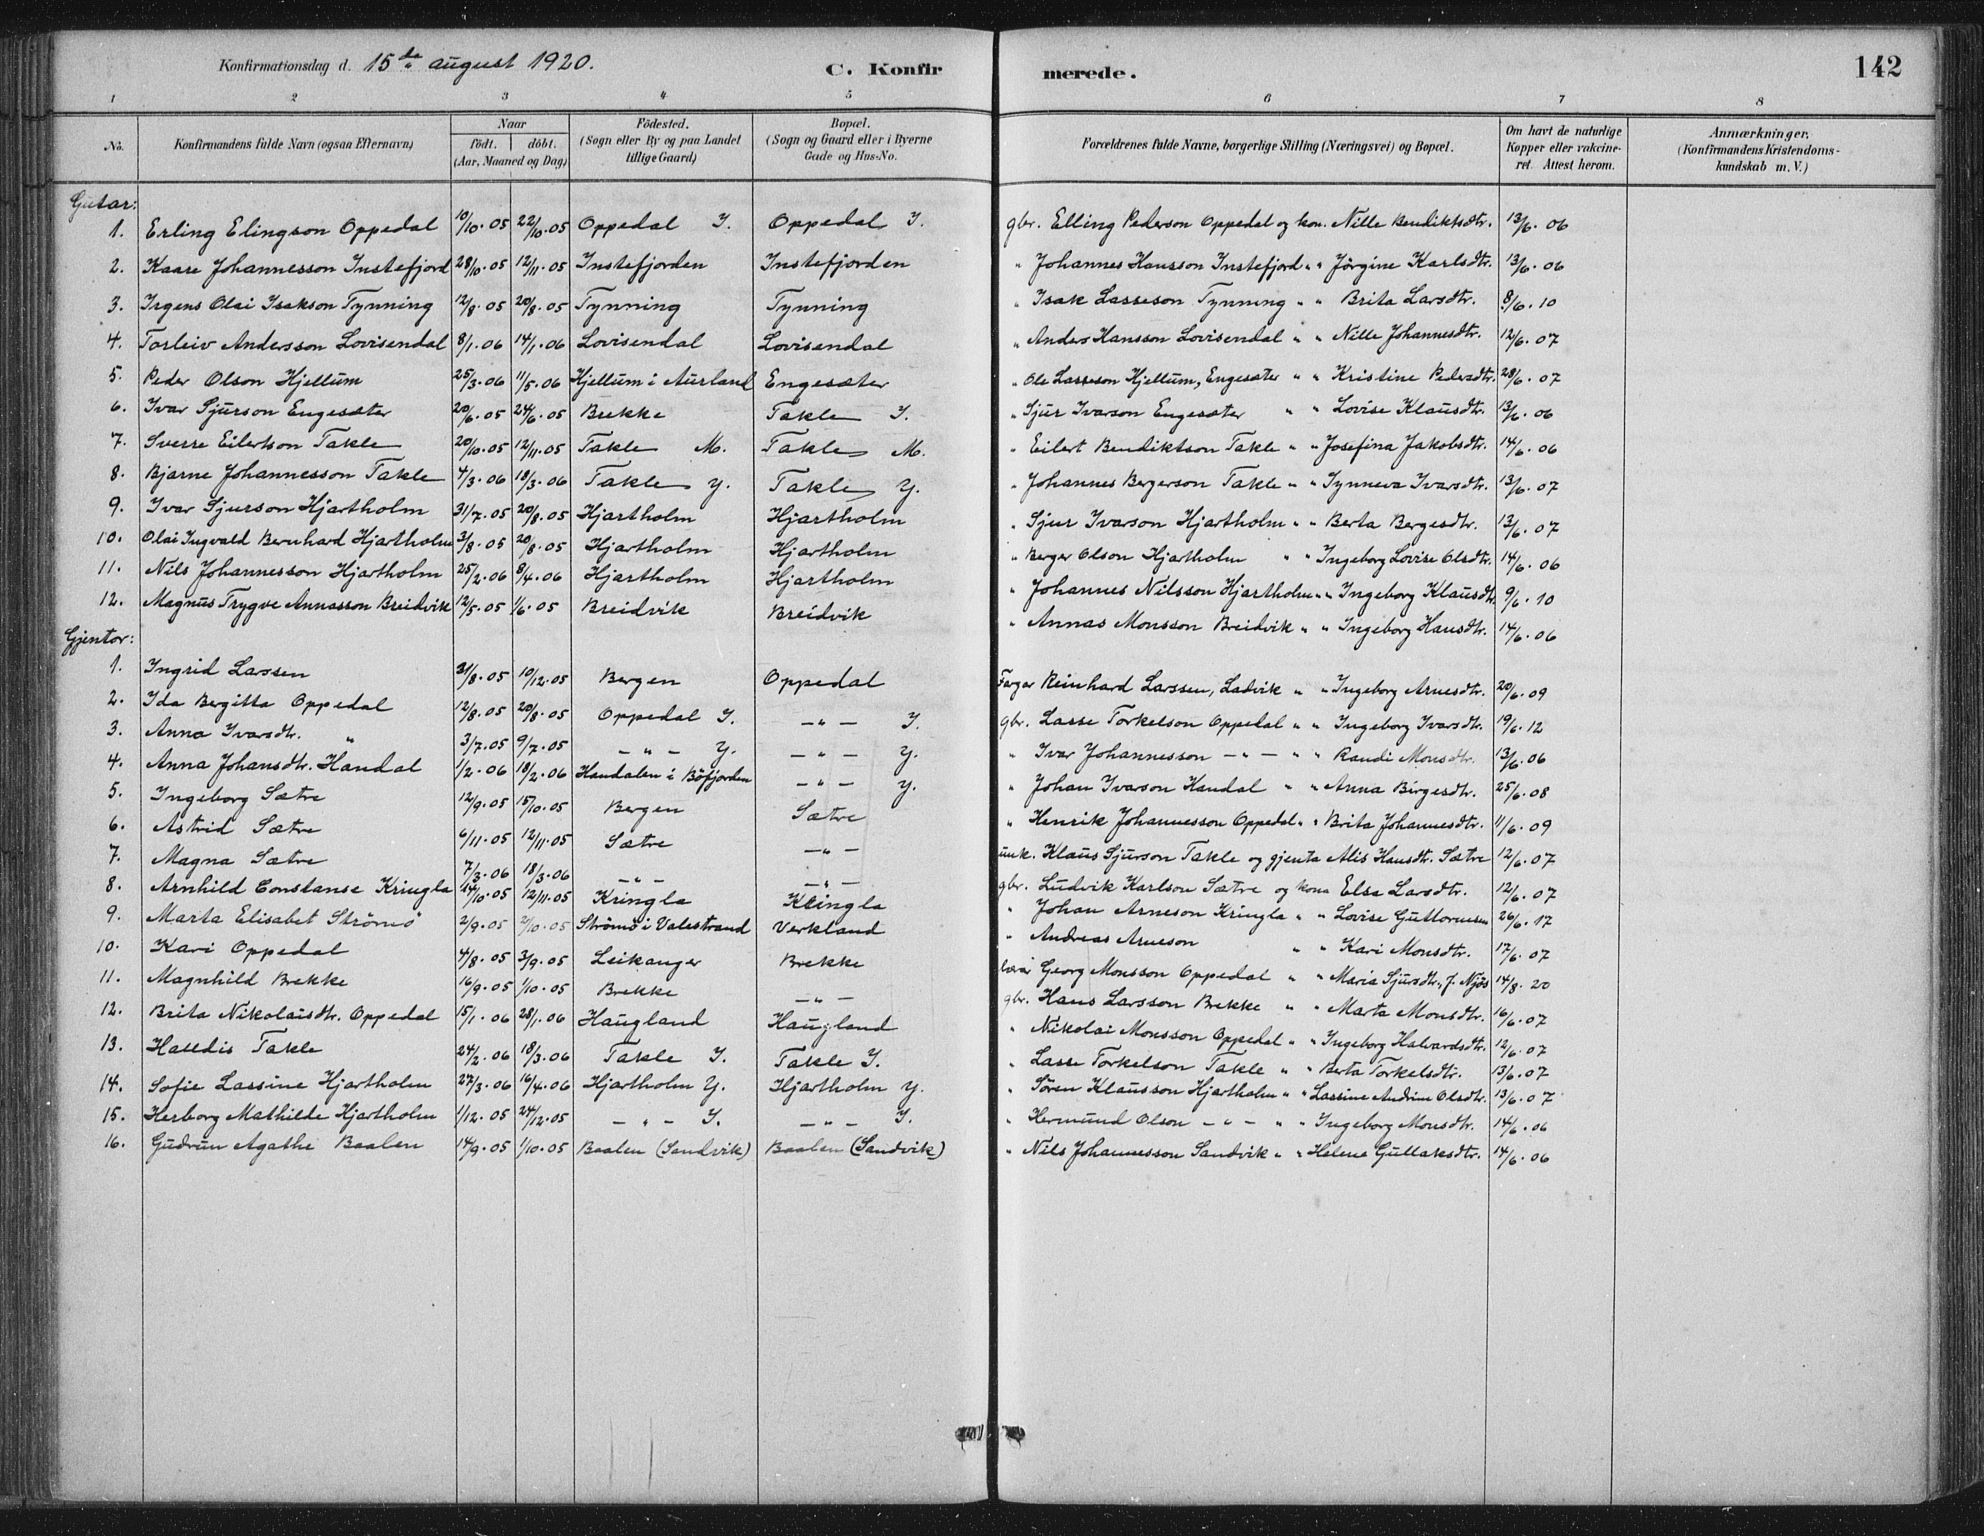 Konfirmationsdag d. 15de august 1920. C. Konfir merede. 142
1 2 3 4 5 6 7 8
No. Konfirmandens fulde Navn (ogsaa Efternavn) Naar födt. döbt. (Aar, Maaned og Dag) Födested. (Sogn eller By og paa Landet tillige Gaard) Bopæl. (Sogn og Gaard eller i Byerne Gade og Hus-No. Forældrenes fulde Navne, borgerlige Stilling (Næringsvei) og Bopæl. Om havt de naturlige Kopper eller vakcineret. Attest herom. Anmærkninger. (Konfirmandens Kristendomskundskab m. V.)
Gutar:
1. Erling Elingson Oppedal 10/10.05 22/10.05 Oppedal Y. Oppedal Y. gbr. Elling Pederson Oppedal og kon. Nille Bendiktsdtr. 13/6.06
2. Kaare Johannesson Instefjord 28/10.05 12/11.05 Instefjorden Instefjorden " Johannes Hansson Instefjord " " Jörgine Karlsdtr. 13/6.06
3. Irgens Olai Isakson Tynning 12/8.05 20/8.05 Tynning Tynning " Isak Lasseson Tynning " " Brita Larsdtr. 8/6.10
4. Torleiv Andersson Lovisendal 8/1.06 14/1.06 Lovisendal Lovisendal " Anders Hansson Lovisendal " " Nille Johannesdtr. 12/6.07
5. Peder Olson Hjellum 25/3.06 11/5.06 Hjellum i Aurland Engesæter " Ole Lasseson Hjellum, Engesæter " " Kristine Pedersdtr. 28/6.07
6. Ivar Sjurson Engesæter 20/6.05 24/6.05 Brekke Takle Y. " Sjur Ivarson Engesæter " " Lovise Klausdtr. 13/6.06
7. Sverre Eilertson Takle 20/10.05 12/11.05 Takle M. Takle M. " Eilert Bendiktson Takle " " Josefina Jakobsdtr. 14/6.06
8. Bjarne Johannesson Takle 4/3.06 18/3.06 Takle Y. Takle Y. " Johannes Bergerson Takle " " Synneva Ivarsdtr. 13/6.07
9. Ivar Sjurson Hjartholm 31/7.05 20/8.05 Hjartholm Hjartholm " Sjur Ivarson Hjartholm " " Berta Bergesdtr. 13/6.07
10. Olai Ingvald Bernhard Hjartholm 3/8.05 20/8.05 Hjartholm Hjartholm " Berger Olson Hjartholm " " Ingeborg Lovise Olsdtr. 14/6.06
11. Nils Johannesson Hjartholm 25/2.06 8/4.06 Hjartholm Hjartholm " Johannes Nilsson Hjartholm " " Ingeborg Klausdtr. 9/6.10
12. Magnus Trygve Annasson Breidvik 12/5.05 1/6.05 Breidvik Breidvik " Annas Monsson Breidvik " " Ingeborg Hansdtr. 14/6.06
Gjentor:
1. Ingrid Larssen 31/8.05 10/12.05 Bergen Oppedal Farger Reinhard Larssen, Ladvik " " Ingeborg Arnesdtr. 20/6.09
2. Ida Bergitta Oppedal 12/8.05 20/8.05 Oppedal Y. — " — Y. gbr. Lasse Torkelson Oppedal " " Ingeborg Ivarsdtr. 19/6.12
3. Anna Ivarsdtr. " 3/7.05 9/7.05 — " — Y. — " — Y. " Ivar Johannesson — " — " " Randi Monsdtr. 13/6.06
4. Anna Johansdtr. Handal 1/2.06 18/2.06 Handalen i Böfjorden — " — Y. " Johan Ivarson Handal " " Anna Birgesdtr. 25/6.08
5. Ingeborg Sætre 12/9.05 15/10.05 Bergen Sætre " Henrik Johannesson Oppedal " " Brita Johannesdtr. 11/6.09
6. Astrid Sætre 6/11.05 12/11.05 Sætre — " — unk. Klaus Sjurson Takle og gjenta Alis Hansdtr. Sætre 12/6.07
7. Magna Sætre 7/3.06 18/3.06 — " — — " — gbr. Ludvik Karlson Sætre og kona Elsa Larsdtr. 12/6.07
8. Arnhild Constanse Kringla 24/10.05 12/11.05 Kringla Kringla " Johan Arneson Kringla " " Lovise Guttormsen 26/6.17
9. Marta Elisabet Strömö 2/9.05 2/10.05 Strömö i Valestrand Verkland " Andreas Arneson " " Kari Monsdtr. 17/6.07
10. Kari Oppedal 4/8.05 3/9.05 Leikanger Brekke Georg Monsson Oppedal " " Maria Sjursdtr., f. Njös 14/8.20
11. Magnhild Brekke 16/9.05 1/10.05 Brekke — " — gbr. Hans Larsson Brekke " " Marta Monsdtr. 16/6.07
12. Brita Nikolaisdtr. Oppedal 15/1.06 28/1.06 Haugland Haugland " Nikolai Monsson Oppedal " " Ingeborg Halvardsdtr. 12/6.07
13. Halldis Takle 24/2.06 18/3.06 Takle Y. Takle Y. " Lasse Torkelson Takle " " Berta Torkelsdtr. 13/6.07
14. Sofie Lassine Hjartholm 27/3.06 16/4.06 Hjartholm Y. Hjartholm Y. " Sören Klausson Hjartholm " " Lassine Andrine Olsdtr. 13/6.07
15. Herborg Mathilde Hjartholm 1/12.05 24/12.05 — " — Y. — " — Y. " Hermund Olson — " — " " Ingeborg Monsdtr. 14/6.06
16. Gudrun Agathe Baalen 14/9.05 1/10.05 Baalen (Sandvik) Baalen (Sandvik) " Nils Johannesson Sandvik " " Helene Gullaksdtr. 14/6.06